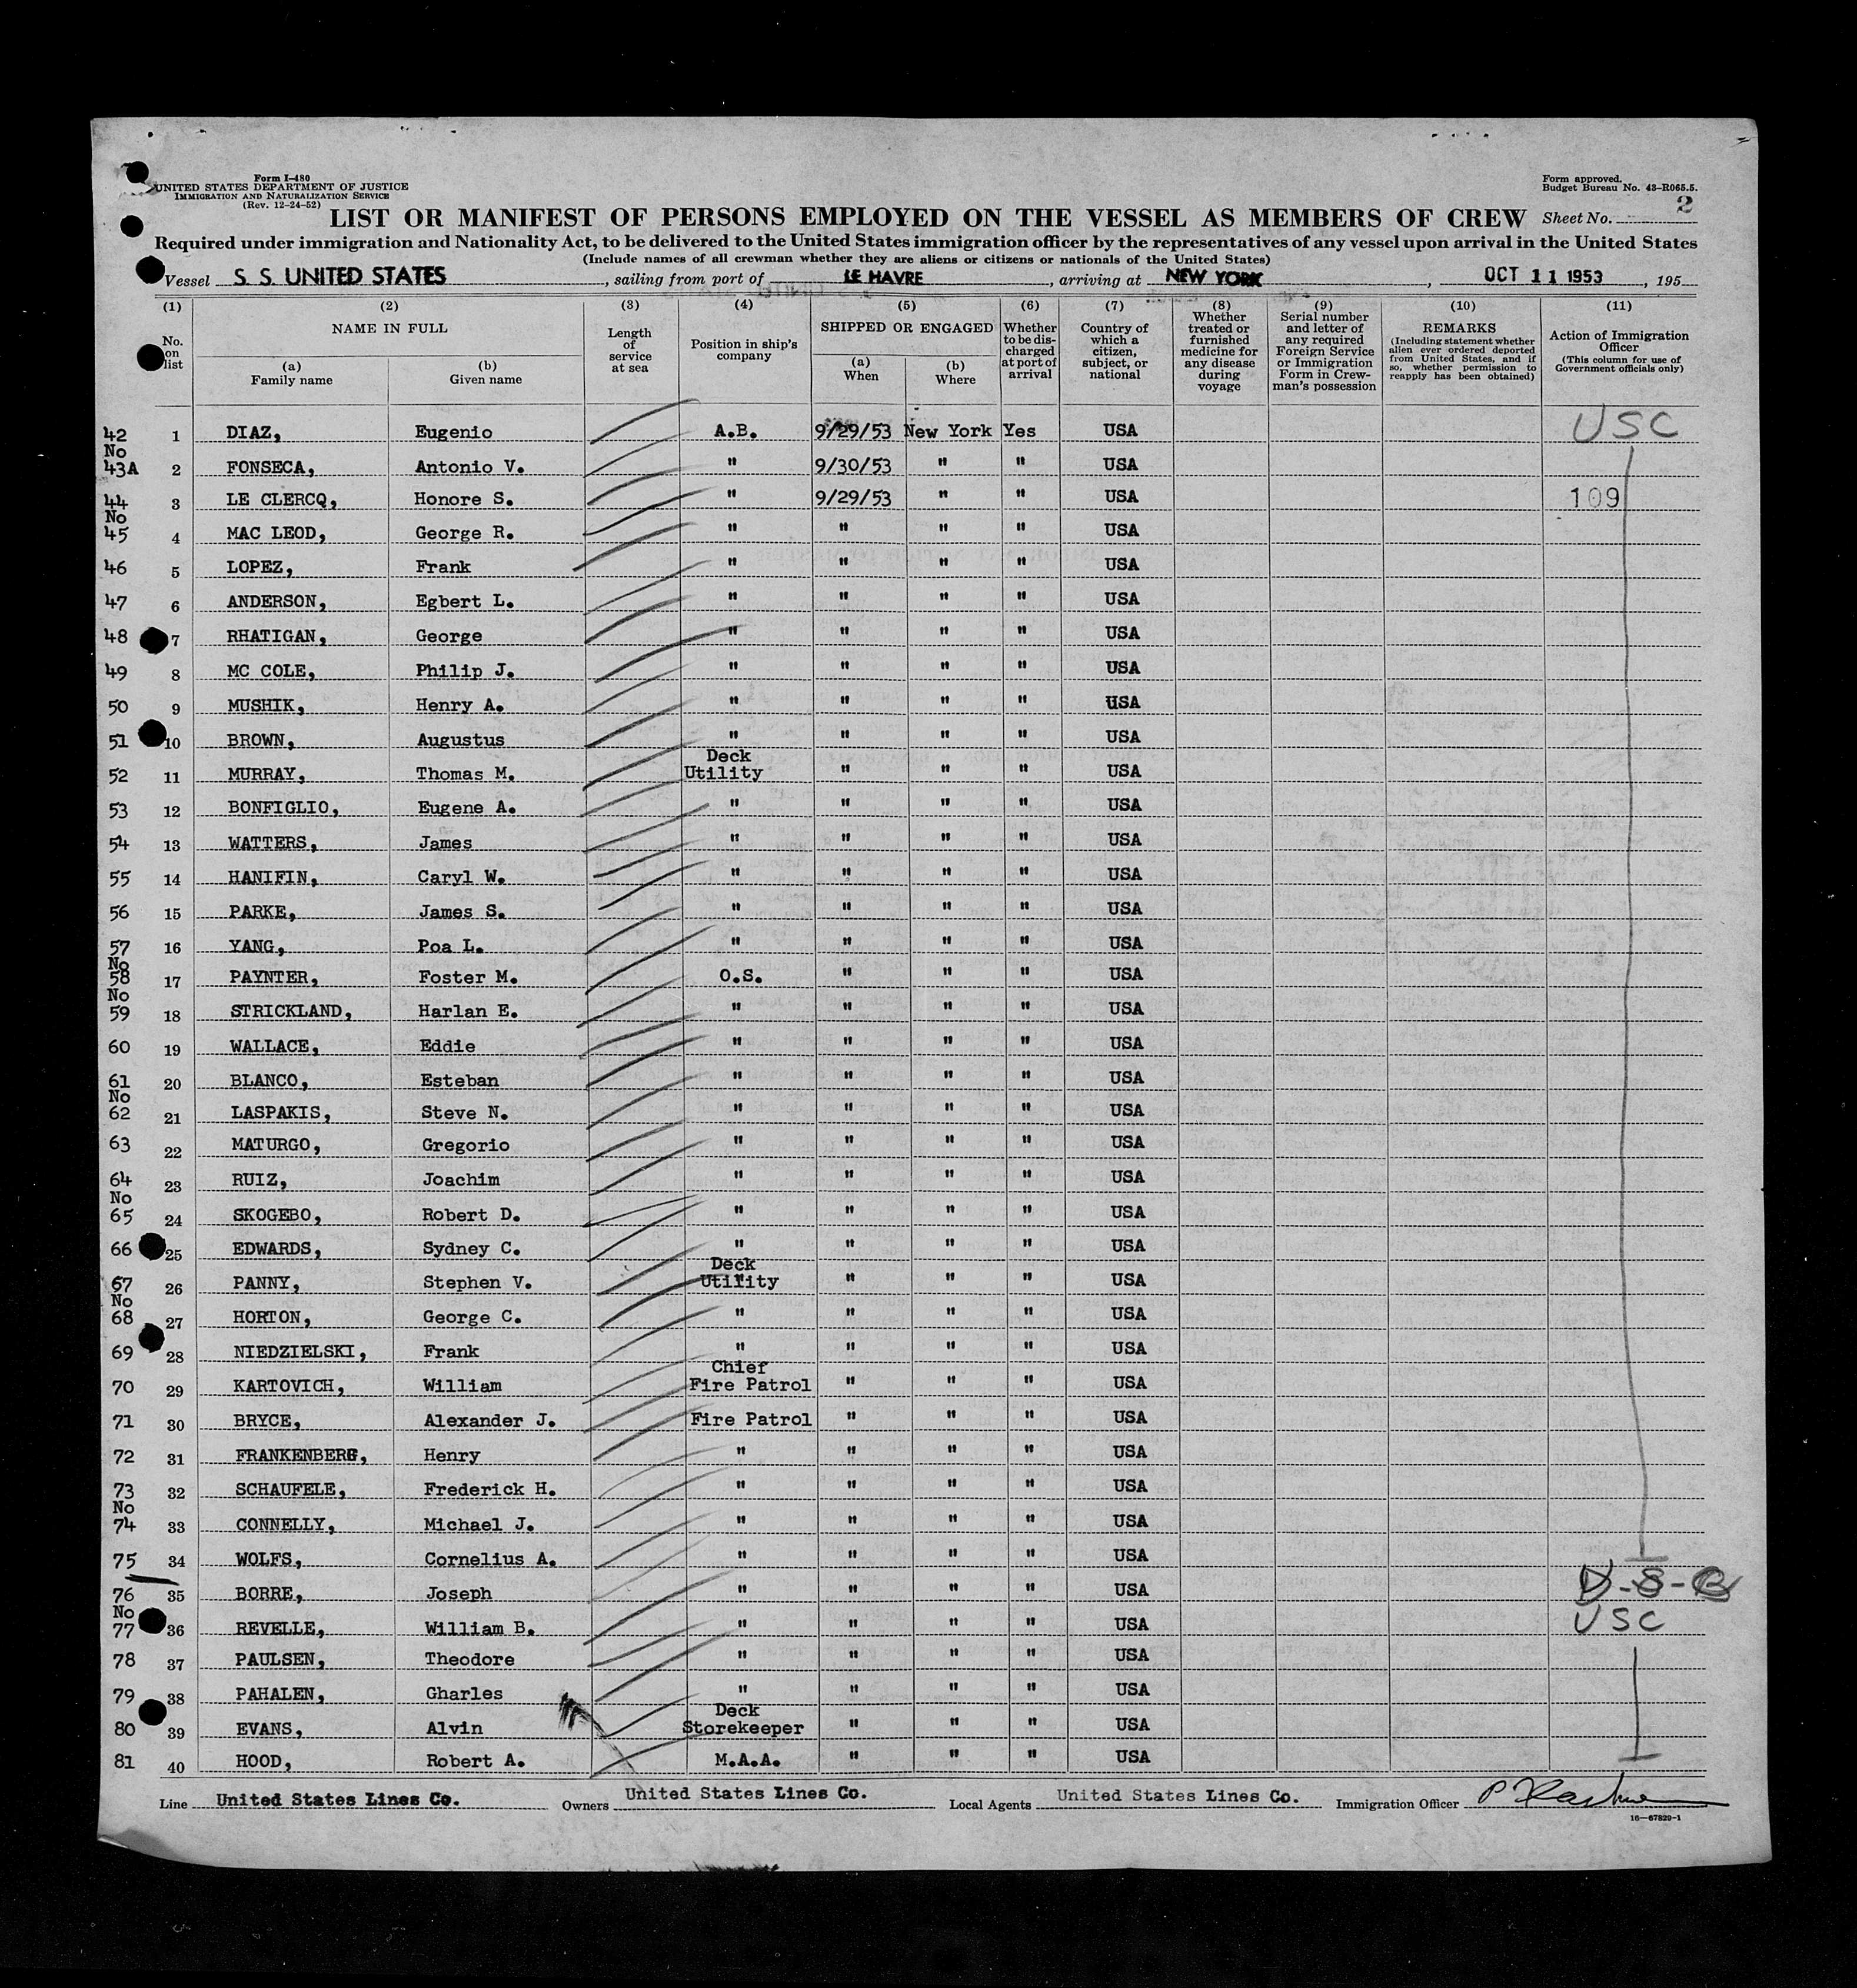 Form I-480
UNITED STATES DEPARTMENT OF JUSTICE
IMMIGRATION AND NATURALIZATION SERVICE
(Rev. 12-24-52)
Form approved.
Budget Bureau No. 43-R065.5.
LIST OR MANIFEST OF PERSONS EMPLOYED ON THE VESSEL AS MEMBERS OF CREW Sheet No. 2
Required under immigration and Nationality Act, to be delivered to the United States immigration officer by the representatives of any vessel upon arrival in the United States
(Include names of all crewman whether they are aliens or citizens or nationals of the United States)
Vessel S. S. UNITED STATES, sailing from port of LE HAVRE, arriving at NEW YORK, OCT 11 1953, 195
(1) (2) (3) (4) (5) (6) (7) (8) (9) (10) (11)
No. on list
NAME IN FULL
(a) Family name
(b) Given name
Length of service at sea
Position in ship's company
SHIPPED OR ENGAGED
(a) When
(b) Where
Whether to be discharged at port of arrival
Country of which a citizen, subject, or national
Whether treated or furnished medicine for any disease during voyage
Serial number and letter of any required Foreign Service or Immigration Form in Crewman's possession
REMARKS
(Including statement whether alien ever ordered deported from United States, and if so, whether permission to reapply has been obtained)
Action of Immigration Officer
(This column for use of Government officials only)
42 1 DIAZ, Eugenio A.B. 9/29/53 New York Yes USA USC
No 43A 2 FONSECA, Antonio V. " 9/30/53 " " USA
44 3 LE CLERCQ, Honore S. " 9/29/53 " " USA 109
No 45 4 MAC LEOD, George R. " " " " USA
46 5 LOPEZ, Frank " " " " USA
47 6 ANDERSON, Egbert L. " " " " USA
48 7 RHATIGAN, George " " " " USA
49 8 MC COLE, Philip J. " " " " USA
50 9 MUSHIK, Henry A. " " " " USA
51 10 BROWN, Augustus " " " " USA
52 11 MURRAY, Thomas M. Deck Utility " " " USA
53 12 BONFIGLIO, Eugene A. " " " " USA
54 13 WATTERS, James " " " " USA
55 14 HANIFIN, Caryl W. " " " " USA
56 15 PARKE, James S. " " " " USA
57 16 YANG, Poa L. " " " " USA
No 58 17 PAYNTER, Foster M. O.S. " " " USA
No 59 18 STRICKLAND, Harlan E. " " " " USA
60 19 WALLACE, Eddie " " " " USA
61 20 BLANCO, Esteban " " " " USA
No 62 21 LASPAKIS, Steve N. " " " " USA
63 22 MATURGO, Gregorio " " " " USA
64 23 RUIZ, Joachim " " " " USA
No 65 24 SKOGEBO, Robert D. " " " " USA
66 25 EDWARDS, Sydney C. " " " " USA
67 26 PANNY, Stephen V. Deck Utility " " " USA
No 68 27 HORTON, George C. " " " " USA
69 28 NIEDZIELSKI, Frank " " " " USA
70 29 KARTOVICH, William Chief Fire Patrol " " " USA
71 30 BRYCE, Alexander J. Fire Patrol " " " USA
72 31 FRANKENBERG, Henry " " " " USA
73 32 SCHAUFELE, Frederick H. " " " " USA
No 74 33 CONNELLY, Michael J. " " " " USA
75 34 WOLFS, Cornelius A. " " " " USA
76 35 BORRE, Joseph " " " " USA
No 77 36 REVELLE, William B. " " " " USA USC
78 37 PAULSEN, Theodore " " " " USA
79 38 PAHALEN, Gharles " " " " USA
80 39 EVANS, Alvin Deck Storekeeper " " " USA
81 40 HOOD, Robert A. M.A.A. " " " USA
Line United States Lines Co. Owners United States Lines Co. Local Agents United States Lines Co. Immigration Officer
16—67829-1